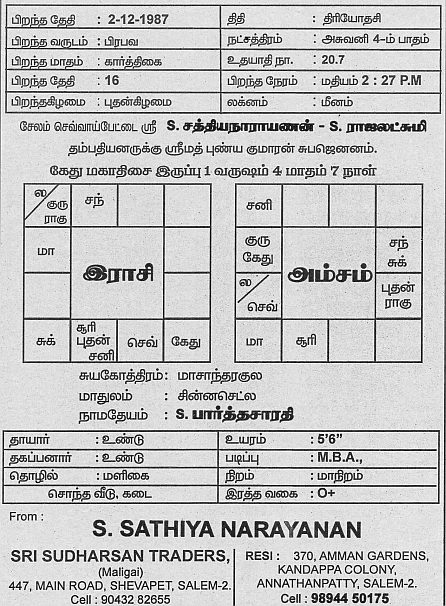 பிறந்த தேதி : 2-12-1987 திதி : திரியோதசி
பிறந்த வருடம் : பிரபவ நட்சத்திரம் : அசுவனி 4-ம் பாதம்
பிறந்த மாதம் : கார்த்திகை உதயாதி நா. : 20.7
பிறந்த தேதி : 16 பிறந்த நேரம் : மதியம் 2 : 27 P.M
பிறந்தகிழமை : புதன்கிழமை லக்னம் : மீனம்
சேலம் செவ்வாய்பேட்டை ஸ்ரீ S. சத்தியநாராயணன் - S. ராஜலட்சுமி
தம்பதியனருக்கு ஸ்ரீமத் புண்ய குமாரன் சுபஜெனனம்.
கேது மகாதிசை இருப்பு 1 வருஷம் 4 மாதம் 7 நாள்
ல குரு ராகு சந்
மா
இராசி
சுக் சூரி புதன் சனி செவ் கேது
சனி
குரு கேது சந் சுக்
அம்சம்
ல செவ் புதன் ராகு
மா சூரி
சுயகோத்திரம் : மாசாந்தரகுல
மாதுலம் : சின்னசெட்ல
நாமதேயம் : S. பார்த்தசாரதி
தாயார் : உண்டு உயரம் : 5'6"
தகப்பனார் : உண்டு படிப்பு : M.B.A.,
தொழில் : மளிகை நிறம் : மாநிறம்
சொந்த வீடு, கடை இரத்த வகை : O+
From :
S. SATHIYA NARAYANAN
SRI SUDHARSAN TRADERS,
(Maligai)
447, MAIN ROAD, SHEVAPET, SALEM-2.
Cell : 90432 82655
RESI : 370, AMMAN GARDENS,
KANDAPPA COLONY,
ANNATHANPATTY, SALEM-2.
Cell : 98944 50175